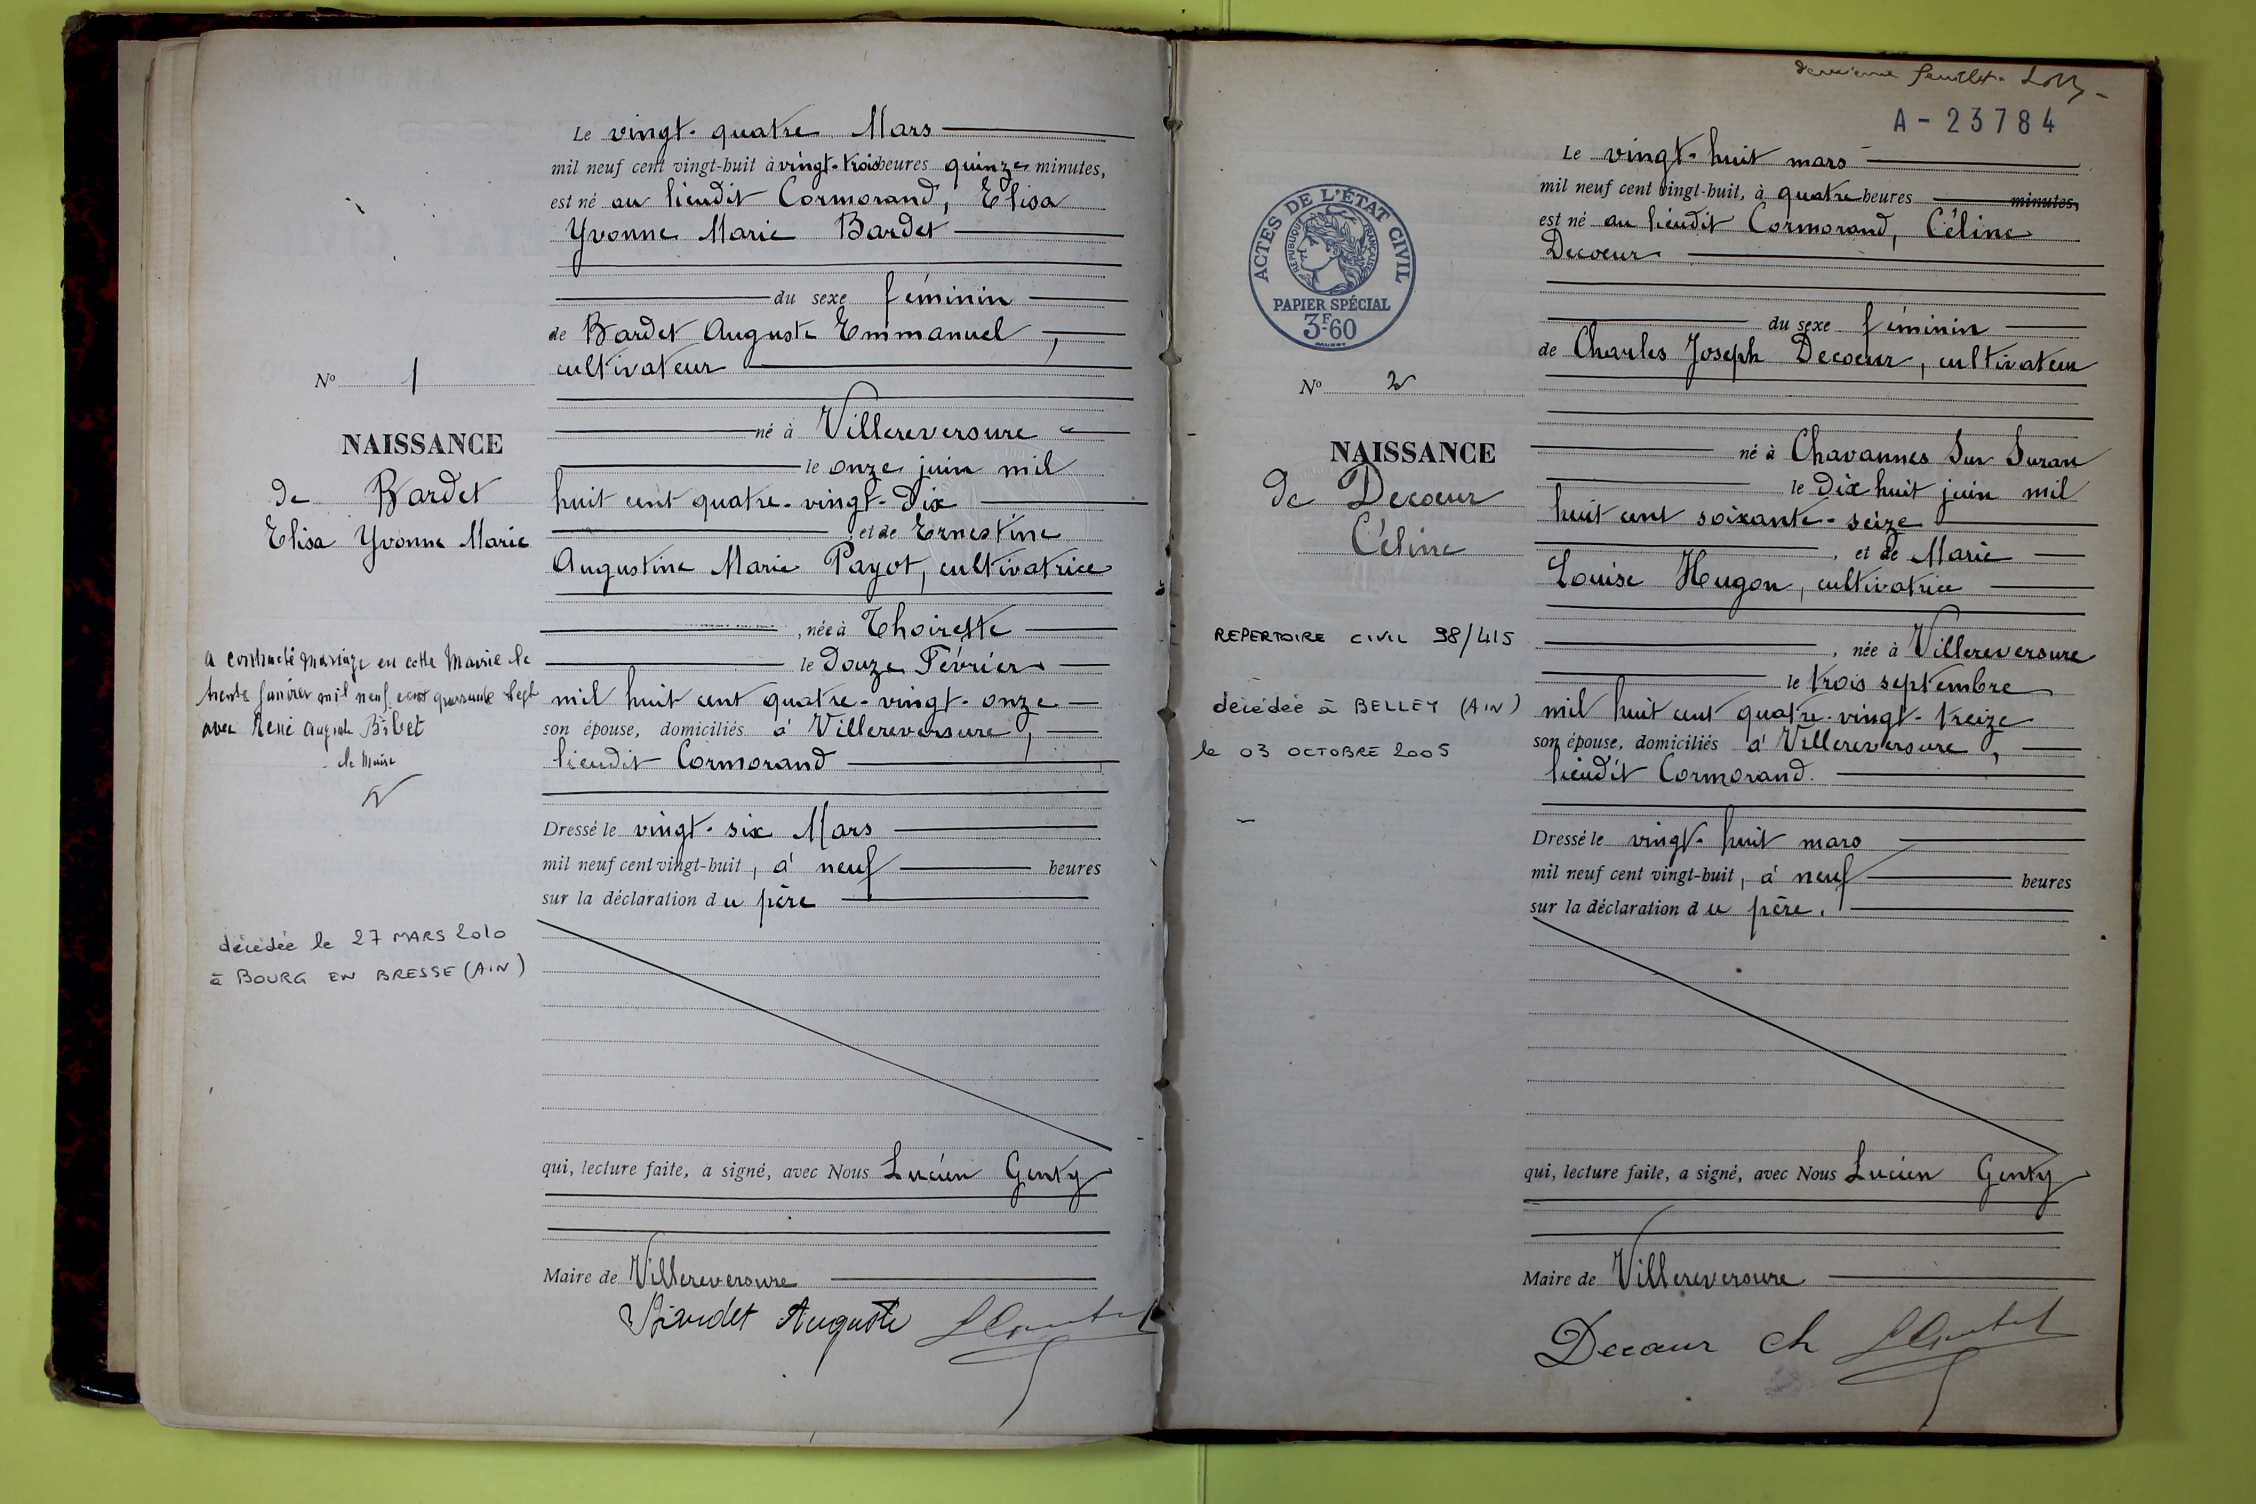 Le vingt-quatre Mars
mil neuf cent vingt-huit à vingt-trois heures quinze minutes,
est né au lieudit Cormorand, Elisa
Yvonne Marie Bardet
du sexe féminin
de Bardet Auguste Emmanuel,
cultivateur
né à Villereversure
le onze juin mil
huit cent quatre-vingt-dix
, et de Ernestine
Augustine Marie Payot, cultivatrice
, née à Thoirette
le douze Février
mil huit cent quatre-vingt-onze
son épouse, domiciliés à Villereversure,
lieudit Cormorand
Dressé le vingt-six Mars
mil neuf cent vingt-huit, à neuf heures
sur la déclaration du père
qui, lecture faite, a signé, avec Nous Lucien Genty
Maire de Villereversure
Bardet Auguste
No 1
NAISSANCE
de Bardet
Elisa Yvonne Marie
a contracté mariage en cette Mairie le
trente Janvier mil neuf cent quarante sept
avec René Auguste
le Maire
décédée le 27 MARS 2010
à BOURG EN BRESSE (AIN)
feuillet
A-23784
Le vingt-huit mars
mil neuf cent vingt-huit, à quatre heures minutes,
est né au lieudit Cormorand, Céline
Decoeur
du sexe féminin
de Charles Joseph Decoeur, cultivateur
né à Chavannes Sur Suran
le dix huit juin mil
huit cent soixante-seize
, et de Marie
Louise Hugon, cultivatrice
, née à Villereversure
le trois septembre
mil huit cent quatre-vingt-treize
son épouse, domiciliés à Villereversure,
lieudit Cormorand.
Dressé le vingt-huit mars
mil neuf cent vingt-huit, à neuf heures
sur la déclaration du père.
qui, lecture faite, a signé, avec Nous Lucien Genty
Maire de Villereversure
Decoeur Ch
ACTES DE L'ÉTAT CIVIL
RÉPUBLIQUE FRANÇAISE
PAPIER SPÉCIAL
3F-60
No 2
NAISSANCE
de Decoeur
Céline
REPERTOIRE CIVIL 98/415
décédée à BELLEY (AIN)
le 03 OCTOBRE 2005